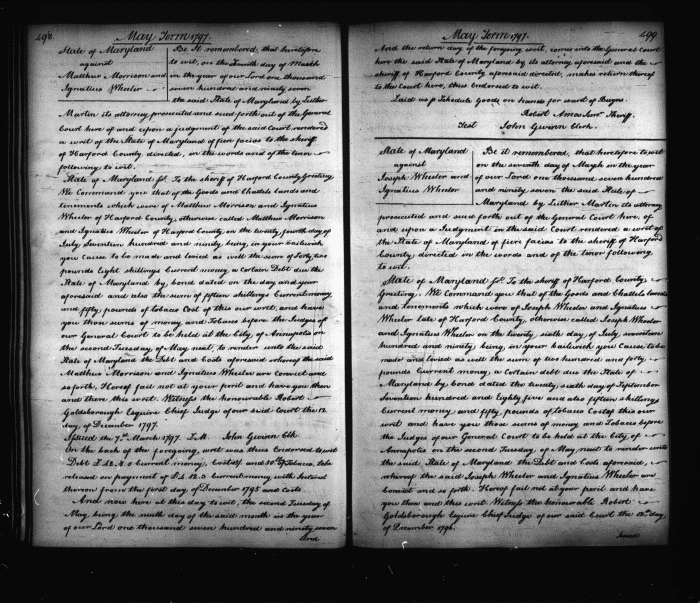 498.
May Term 1797.
State of Maryland
against
Matthew Morrison and
Ignatius Wheeler
Be it remembered, that heretofore
to wit, on the Fourth day of March
in the year of our Lord one thousand
seven hundred and ninety seven
the said State of Maryland by Luther
Martin its attorney, prosecuted and sued forth out of the General
Court here of and upon a judgment of the said Court rendered
a writ of the State of Maryland of fieri facias to the sheriff
of Harford County directed, in the words and of the tenor
following to wit.
State of Maryland fst. To the sheriff of Harford County Greeting
We Command you that of the Goods and Chattels lands and
tenements which were of Matthew Morrison and Ignatius
Wheeler of Harford County, otherwise called Matthew Morrison
and Ignatius Wheeler of Harford County, on the twenty fourth day of
July Seventeen hundred and ninety being, in your bailiwick
you Cause to be made and levied as well the sum of Forty, two
pounds Eight shillings Current money, a Certain Debt due the
State of Maryland by bond dated on the day and year
aforesaid and also the sum of fifteen shillings Current money
and fifty, pounds of tobacco Cost of this our writ, and have
you those sums of money and Tobacco before the Judges of
our General Court to be held at the City of Annapolis on
the second Tuesday of May next, to render unto the said
State of Maryland the Debt and Costs aforesaid whereof the said
Matthew Morrison and Ignatius Wheeler are Convict and
so forth, Hereof fail not at your peril and have you then
and there this writ. Witness the honourable Robert
Goldsborough Esquire Chief Judge of our said Court the 12
day of December 1797.
Issued the 7th March 1797. L.M. John Gwinn Clk
On the back of the foregoing, writ was thus Endorsed to wit
Debt £ 42.8.0 Current money, Costs and Tobacco, to be
released on payment of Current money with Interest
thereon from the first day of December 1795 and Costs.
And now here at this day to wit, the second Tuesday of
May being the ninth day of the said month in the year
of our Lord one thousand seven hundred and ninety seven
And
May Term 1797.
499
And the return day of the foregoing writ, comes into the General Court
here the said State of Maryland by its attorney aforesaid and the
sheriff of Harford County aforesaid directed, makes return thereof
to the Court here, thus endorsed to wit.
Laid as p Schedule Goods on hands for want of Buyers.
Robert Amos Junr Shriff.
Test John Gwinn Clerk.
State of Maryland
against
Joseph Wheeler and
Ignatius Wheeler
Be it remembered, that heretofore to wit
on the seventh day of March in the year
of our Lord one thousand seven hundred
and ninety seven the said State of
Maryland by Luther Martin its attorney
prosecuted and sued forth out of the General Court here, of
and upon a Judgment in the said Court rendered a writ of
the State of Maryland of fieri facias to the sheriff of Harford
County, directed in the words and of the tenor following
to wit.
State of Maryland fst. To the sheriff of Harford County
Greeting. We Command you that of the Goods and Chattels lands
and Tenements which were of Joseph Wheeler and Ignatius
Wheeler late of Harford County, otherwise called Joseph Wheeler
and Ignatius Wheeler on the twenty sixth day of July seventeen
hundred and ninety being, in your bailiwick you Cause to be
made and levied as well the sum of two hundred and forty
pounds Current money, a Certain debt due the State of
Maryland by bond dated the twenty sixth day of September
Seventeen hundred and Eighty five and also fifteen shillings
Current money and fifty, pounds of tobacco Cost of this our
writ and have you those sums of money and Tobacco before
the Judges of our General Court to be held at the City, of
Annapolis on the second Tuesday, of May next to render unto
the said State of Maryland the Debt and Costs aforesaid,
whereof the said Joseph Wheeler and Ignatius Wheeler are
Convict and so forth. Hereof fail not at your peril and have
you then and this writ. Witness the honourable Robert
Goldsborough Esquire Chief Judge of our said Court the 12th day
of December 1796.
Issued